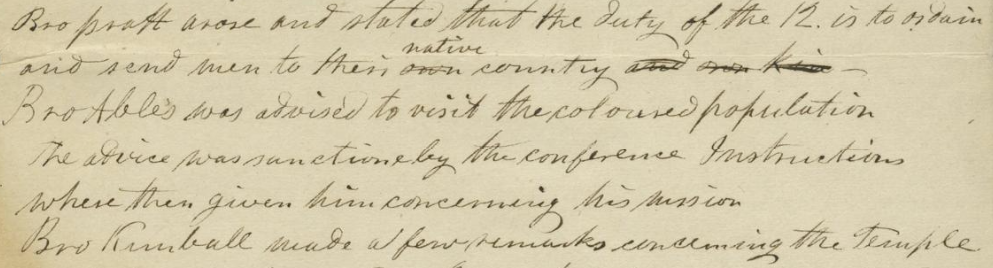 Bro pratt arose and stated that the duty of the 12. is to ordain
native
and send men to their own country and own kin
Bro Ables was advised to visit the coloured population
the advice was sanctione by the conference Instructions
where then given him concerning his mission
Bro Kimball made a few remarks concerning the Temple